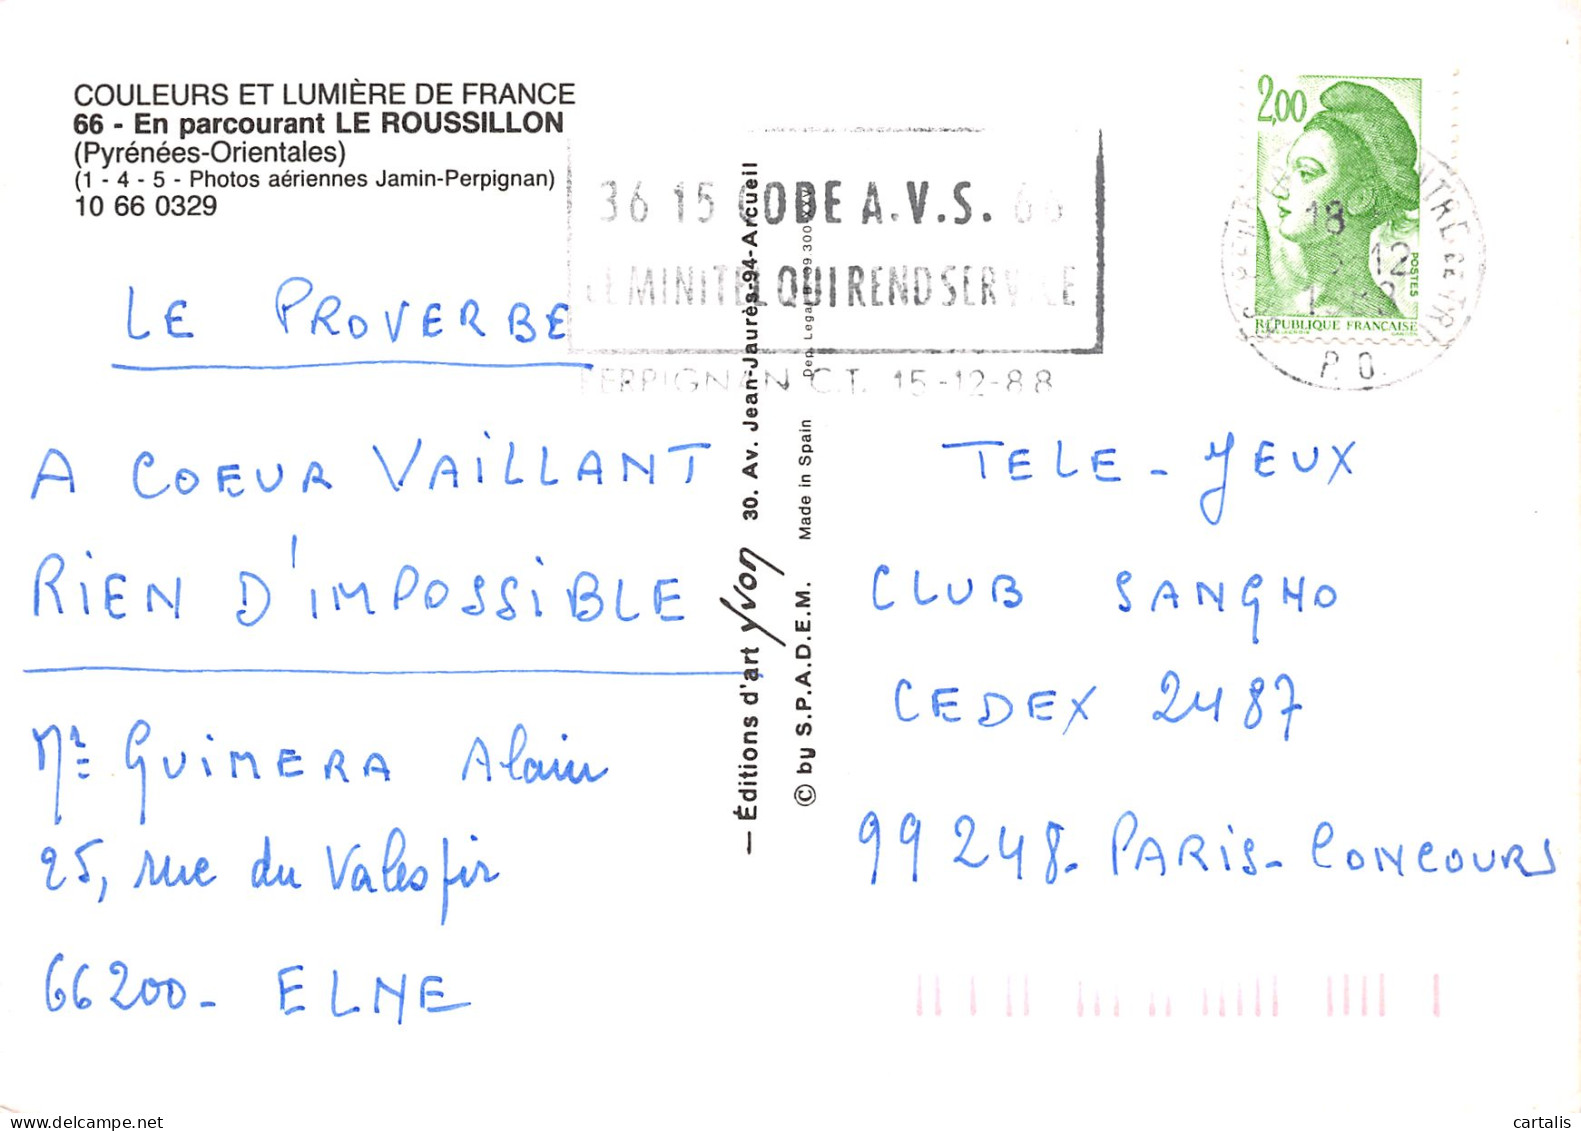 COULEURS ET LUMIÈRE DE FRANCE
66 - En parcourant LE ROUSSILLON
(Pyrénées-Orientales)
(1 - 4 - 5 - Photos aériennes Jamin-Perpignan)
10 66 0329
36 15 CODE A.V.S. 66
LE MINITEL QUI REND SERVICE
PERPIGNAN C.T. 15-12-88
2,00
POSTES
RÉPUBLIQUE FRANÇAISE
18 H
12
P.O.
LE PROVERBE
A COEUR VAILLANT
RIEN D'IMPOSSIBLE
Mr GUIMERA Alain
25, rue du Valespir
66200 - ELNE
— Éditions d'art yvon 30. Av. Jean-Jaurès-94-Arcueil
© by S.P.A.D.E.M. Made in Spain Dep. Legal B.
TELE - YEUX
CLUB SANGHO
CEDEX 2487
99248 - PARIS - CONCOURS
cartalis